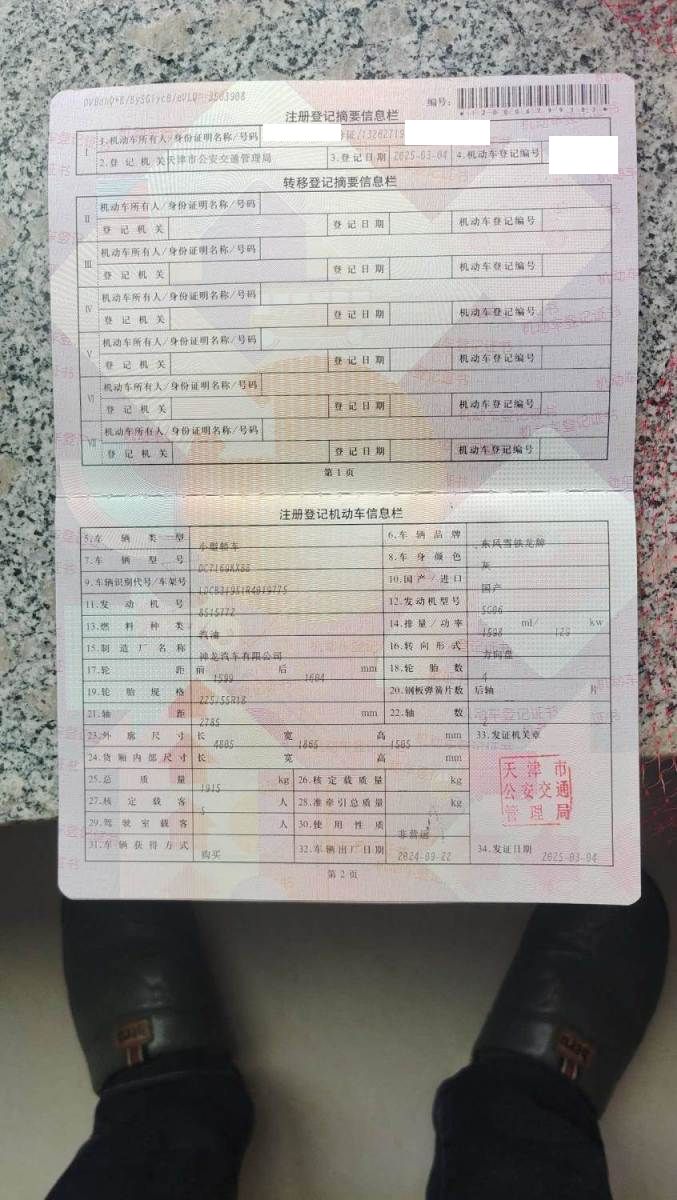 编号:
注册登记摘要信息栏
I 1.机动车所有人/身份证明名称/号码
2.登记机关 天津市公安交通管理局 3.登记日期 2025-03-04 4.机动车登记编号
转移登记摘要信息栏
II 机动车所有人/身份证明名称/号码
登记机关 登记日期 机动车登记编号
III 机动车所有人/身份证明名称/号码
登记机关 登记日期 机动车登记编号
IV 机动车所有人/身份证明名称/号码
登记机关 登记日期 机动车登记编号
V 机动车所有人/身份证明名称/号码
登记机关 登记日期 机动车登记编号
VI 机动车所有人/身份证明名称/号码
登记机关 登记日期 机动车登记编号
VII 机动车所有人/身份证明名称/号码
登记机关 登记日期 机动车登记编号
第1页
注册登记机动车信息栏
5.车辆类型 小型轿车 6.车辆品牌 东风雪铁龙牌
7.车辆型号 8.车身颜色 灰
9.车辆识别代号/车架号 10.国产/进口 国产
11.发动机号 12.发动机型号 5G06
13.燃料种类 汽油 14.排量/功率 1598 ml/ kw
15.制造厂名称 神龙汽车有限公司 16.转向形式 方向盘
17.轮距 前 1599 后 1604 mm 18.轮胎数 4
19.轮胎规格 225/55R18 20.钢板弹簧片数 后轴 片
21.轴距 2785 mm 22.轴数
23.外廓尺寸 长 4805 宽 1865 高 mm 33.发证机关章
24.货厢内部尺寸 长 宽 高 mm
25.总质量 1915 kg 26.核定载质量 kg
27.核定载客 5 人 28.准牵引总质量 kg
29.驾驶室载客 人 30.使用性质 非营运
31.车辆获得方式 购买 32.车辆出厂日期 2024-09-22 34.发证日期 2025-03-04
天津市
公安交通
管理局
第2页